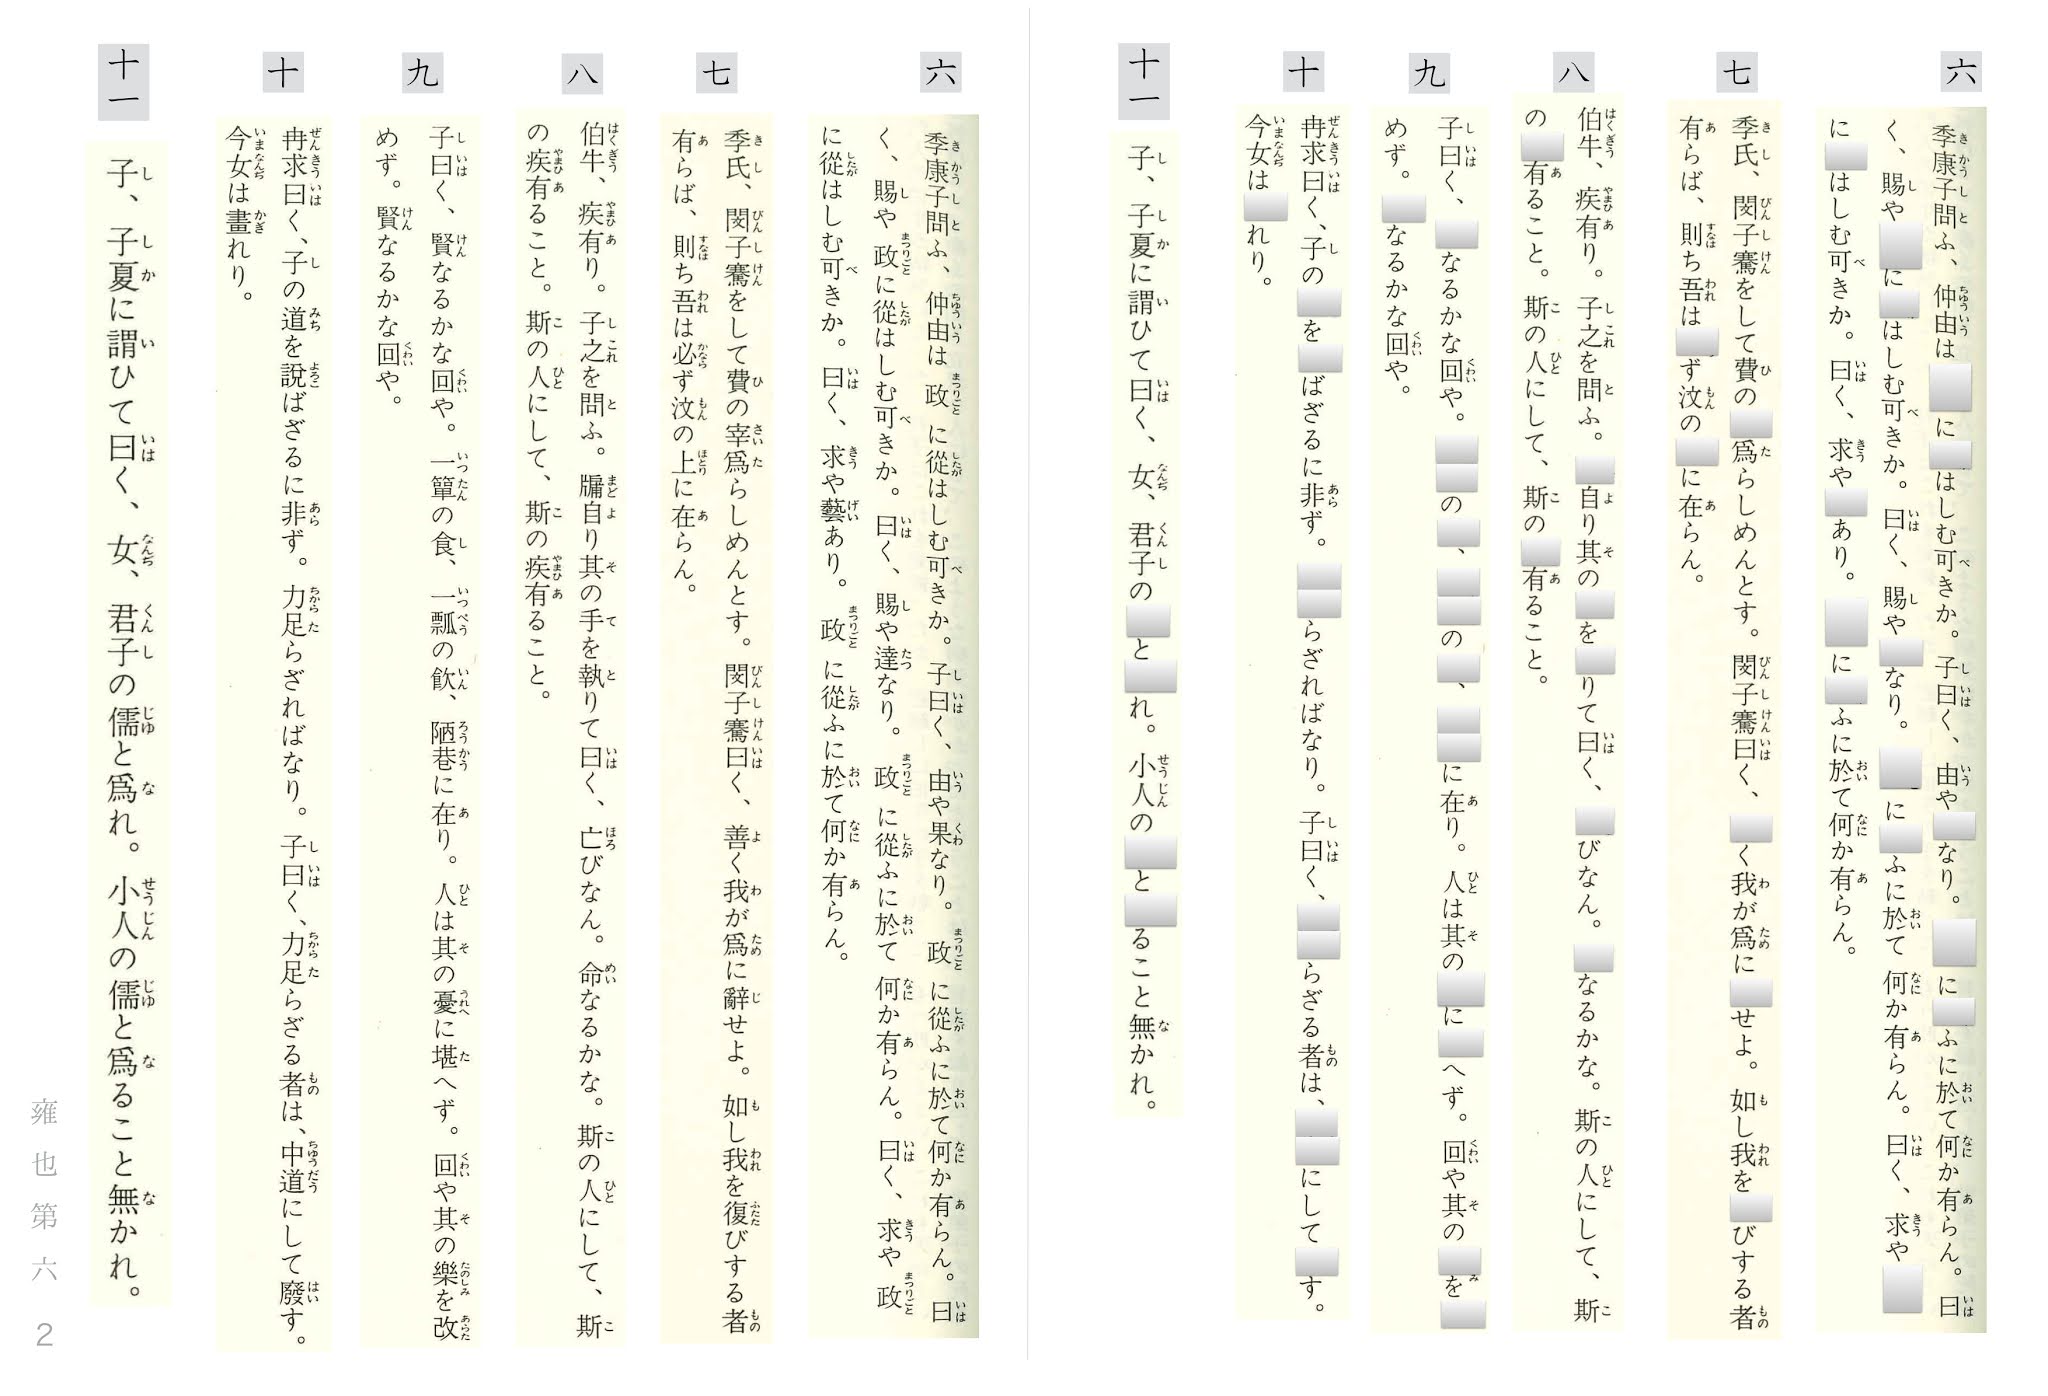 六
季康子問ふ、仲由は　に　はしむ可きか。子曰く、由や　なり。　に　ふに於て何か有らん。曰
く、賜や　に　はしむ可きか。曰く、賜や　なり。　に　ふに於て何か有らん。曰く、求や
に　はしむ可きか。曰く、求や　あり。　に　ふに於て何か有らん。
七
季氏、閔子騫をして費の　爲らしめんとす。閔子騫曰く、　く我が爲に　せよ。如し我を　びする者
有らば、則ち吾は　ず汶の　に在らん。
八
伯牛、疾有り。子之を問ふ。　自り其の　を　りて曰く、　びなん。　なるかな。斯の人にして、斯
の　有ること。斯の人にして、斯の　有ること。
九
子曰く、　なるかな回や。　の　、　の　、　に在り。人は其の　に　へず。回や其の　を
めず。　なるかな回や。
十
冉求曰く、子の　を　ばざるに非ず。　らざればなり。子曰く、　らざる者は、　にして　す。
今女は　れり。
十一
子、子夏に謂ひて曰く、女、君子の　と　れ。小人の　と　ること無かれ。
六
季康子問ふ、仲由は政に從はしむ可きか。子曰く、由や果なり。政に從ふに於て何か有らん。曰
く、賜や政に從はしむ可きか。曰く、賜や達なり。政に從ふに於て何か有らん。曰く、求や政
に從はしむ可きか。曰く、求や藝あり。政に從ふに於て何か有らん。
七
季氏、閔子騫をして費の宰爲らしめんとす。閔子騫曰く、善く我が爲に辭せよ。如し我を復びする者
有らば、則ち吾は必ず汶の上に在らん。
八
伯牛、疾有り。子之を問ふ。牖自り其の手を執りて曰く、亡びなん。命なるかな。斯の人にして、斯
の疾有ること。斯の人にして、斯の疾有ること。
九
子曰く、賢なるかな回や。一簞の食、一瓢の飮、陋巷に在り。人は其の憂に堪へず。回や其の樂を改
めず。賢なるかな回や。
十
冉求曰く、子の道を說ばざるに非ず。力足らざればなり。子曰く、力足らざる者は、中道にして廢す。
今女は畫れり。
十一
子、子夏に謂ひて曰く、女、君子の儒と爲れ。小人の儒と爲ること無かれ。
雍也第六 2